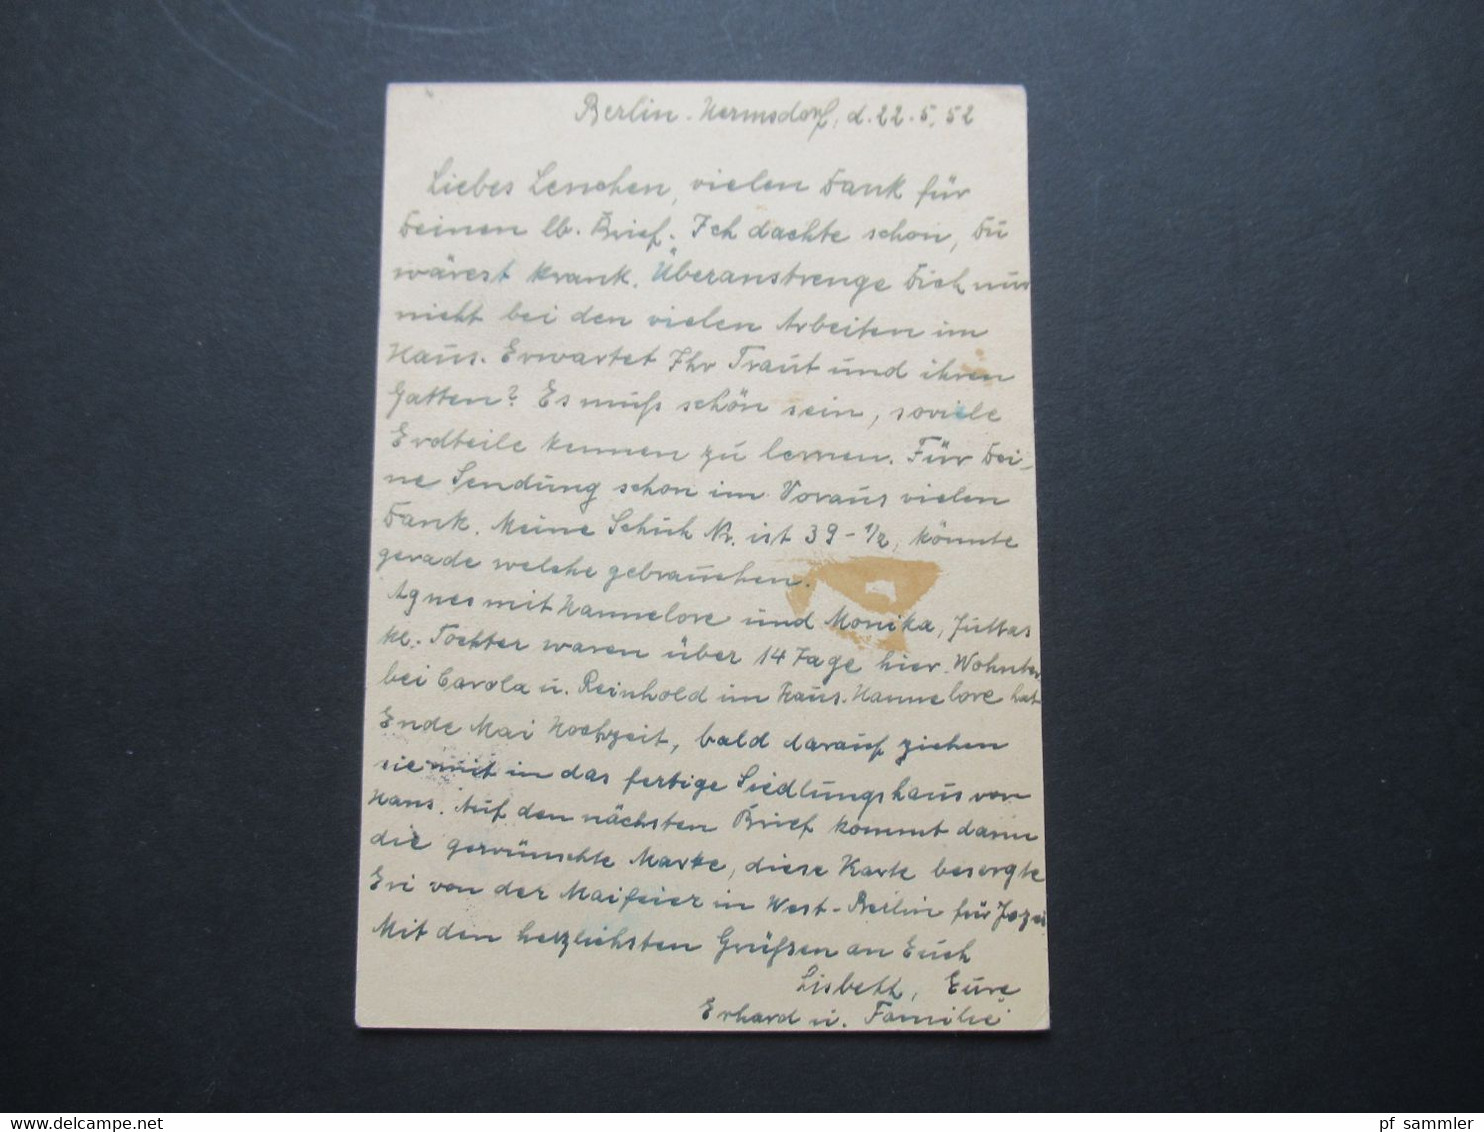 Berlin-Hermsdorf, d. 22.5.52
Liebes Lenchen, vielen Dank für
Deinen lb. Brief. Ich dachte schon, Du
wärest krank. Überanstrenge Dich nur
nicht bei den vielen Arbeiten im
Haus. Erwartet Ihr Traut und ihren
Gatten? Es muß schön sein, soviele
Erdteile kennen zu lernen. Für Dei-
ne Sendung schon im Voraus vielen
Dank. Meine Schuh Nr. ist 39-1/2, könnte
gerade welche gebrauchen.
Agnes mit Hannelore und Monika, Juttas
kl. Tochter waren über 14 Tage hier. Wohnten
bei Carola u. Reinhold im Haus. Hannelore hat
Ende Mai Hochzeit, bald darauf ziehen
sie mit in das fertige Siedlungshaus von
Hans. Auf den nächsten Brief kommt dann
die gewünschte Marke, diese Karte besorgte
Evi von der Maifeier in West-Berlin für
Mit den herzlichsten Grüßen an Euch
Lisbeth, Eure
Erhard u. Familie
pf sammler
delcampe.net